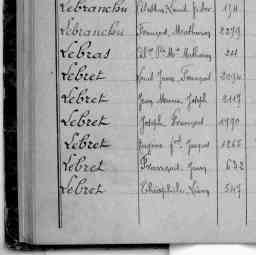 Lebranchu Louis 174
Lebranchu François, Mathurin 2279
Lebras Mathurin 211
Lebret Louis Jean François 2094
Lebret Jean Marie Joseph 2117
Lebret Joseph François 1990
Lebret Eugène Jacques 1265
Lebret François, Jean 632
Lebret Théophile, Léon 547